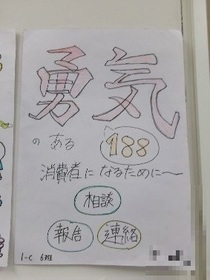 勇気
のある 188
消費者になるために〜
相談
報告 連絡
1-C 6班